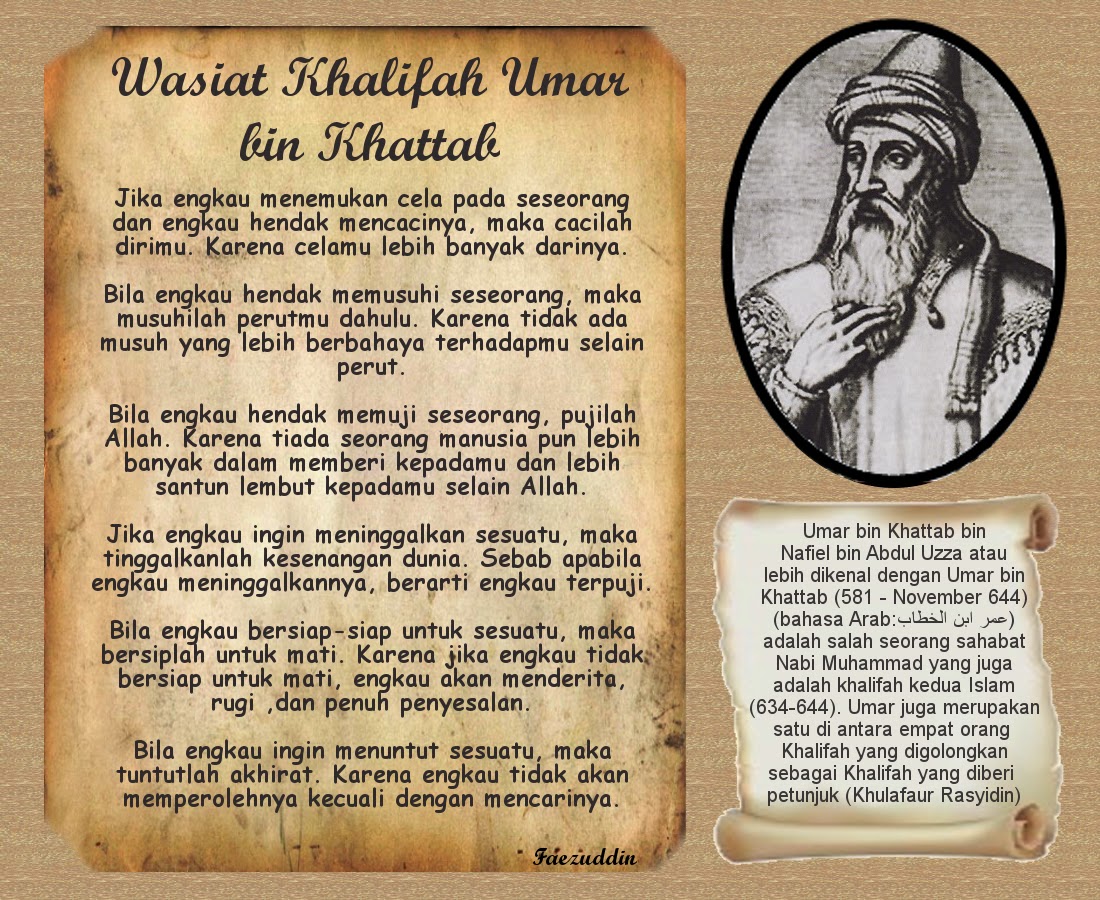 Wasiat Khalifah Umar
bin Khattab
Jika engkau menemukan cela pada seseorang
dan engkau hendak mencacinya, maka cacilah
dirimu. Karena celamu lebih banyak darinya.
Bila engkau hendak memusuhi seseorang, maka
musuhilah perutmu dahulu. Karena tidak ada
musuh yang lebih berbahaya terhadapmu selain
perut.
Bila engkau hendak memuji seseorang, pujilah
Allah. Karena tiada seorang manusia pun lebih
banyak dalam memberi kepadamu dan lebih
santun lembut kepadamu selain Allah.
Jika engkau ingin meninggalkan sesuatu, maka
tinggalkanlah kesenangan dunia. Sebab apabila
engkau meninggalkannya, berarti engkau terpuji.
Bila engkau bersiap-siap untuk sesuatu, maka
bersiplah untuk mati. Karena jika engkau tidak
bersiap untuk mati, engkau akan menderita,
rugi ,dan penuh penyesalan.
Bila engkau ingin menuntut sesuatu, maka
tuntutlah akhirat. Karena engkau tidak akan
memperolehnya kecuali dengan mencarinya.
Faezuddin
Umar bin Khattab bin
Nafiel bin Abdul Uzza atau
lebih dikenal dengan Umar bin
Khattab (581 - November 644)
(bahasa Arab:عمر ابن الخطاب)
adalah salah seorang sahabat
Nabi Muhammad yang juga
adalah khalifah kedua Islam
(634-644). Umar juga merupakan
satu di antara empat orang
Khalifah yang digolongkan
sebagai Khalifah yang diberi
petunjuk (Khulafaur Rasyidin)